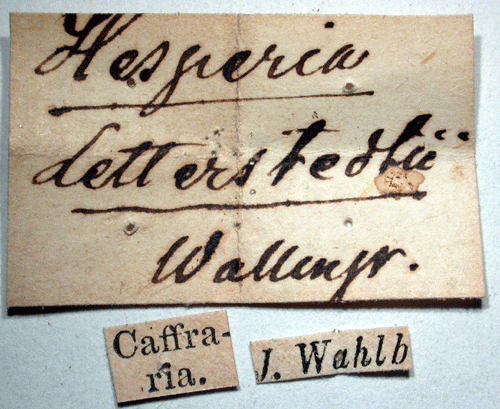 Hesperia
Letterstedtii
Wallengr.
Caffra-
ria.
J. Wahlb